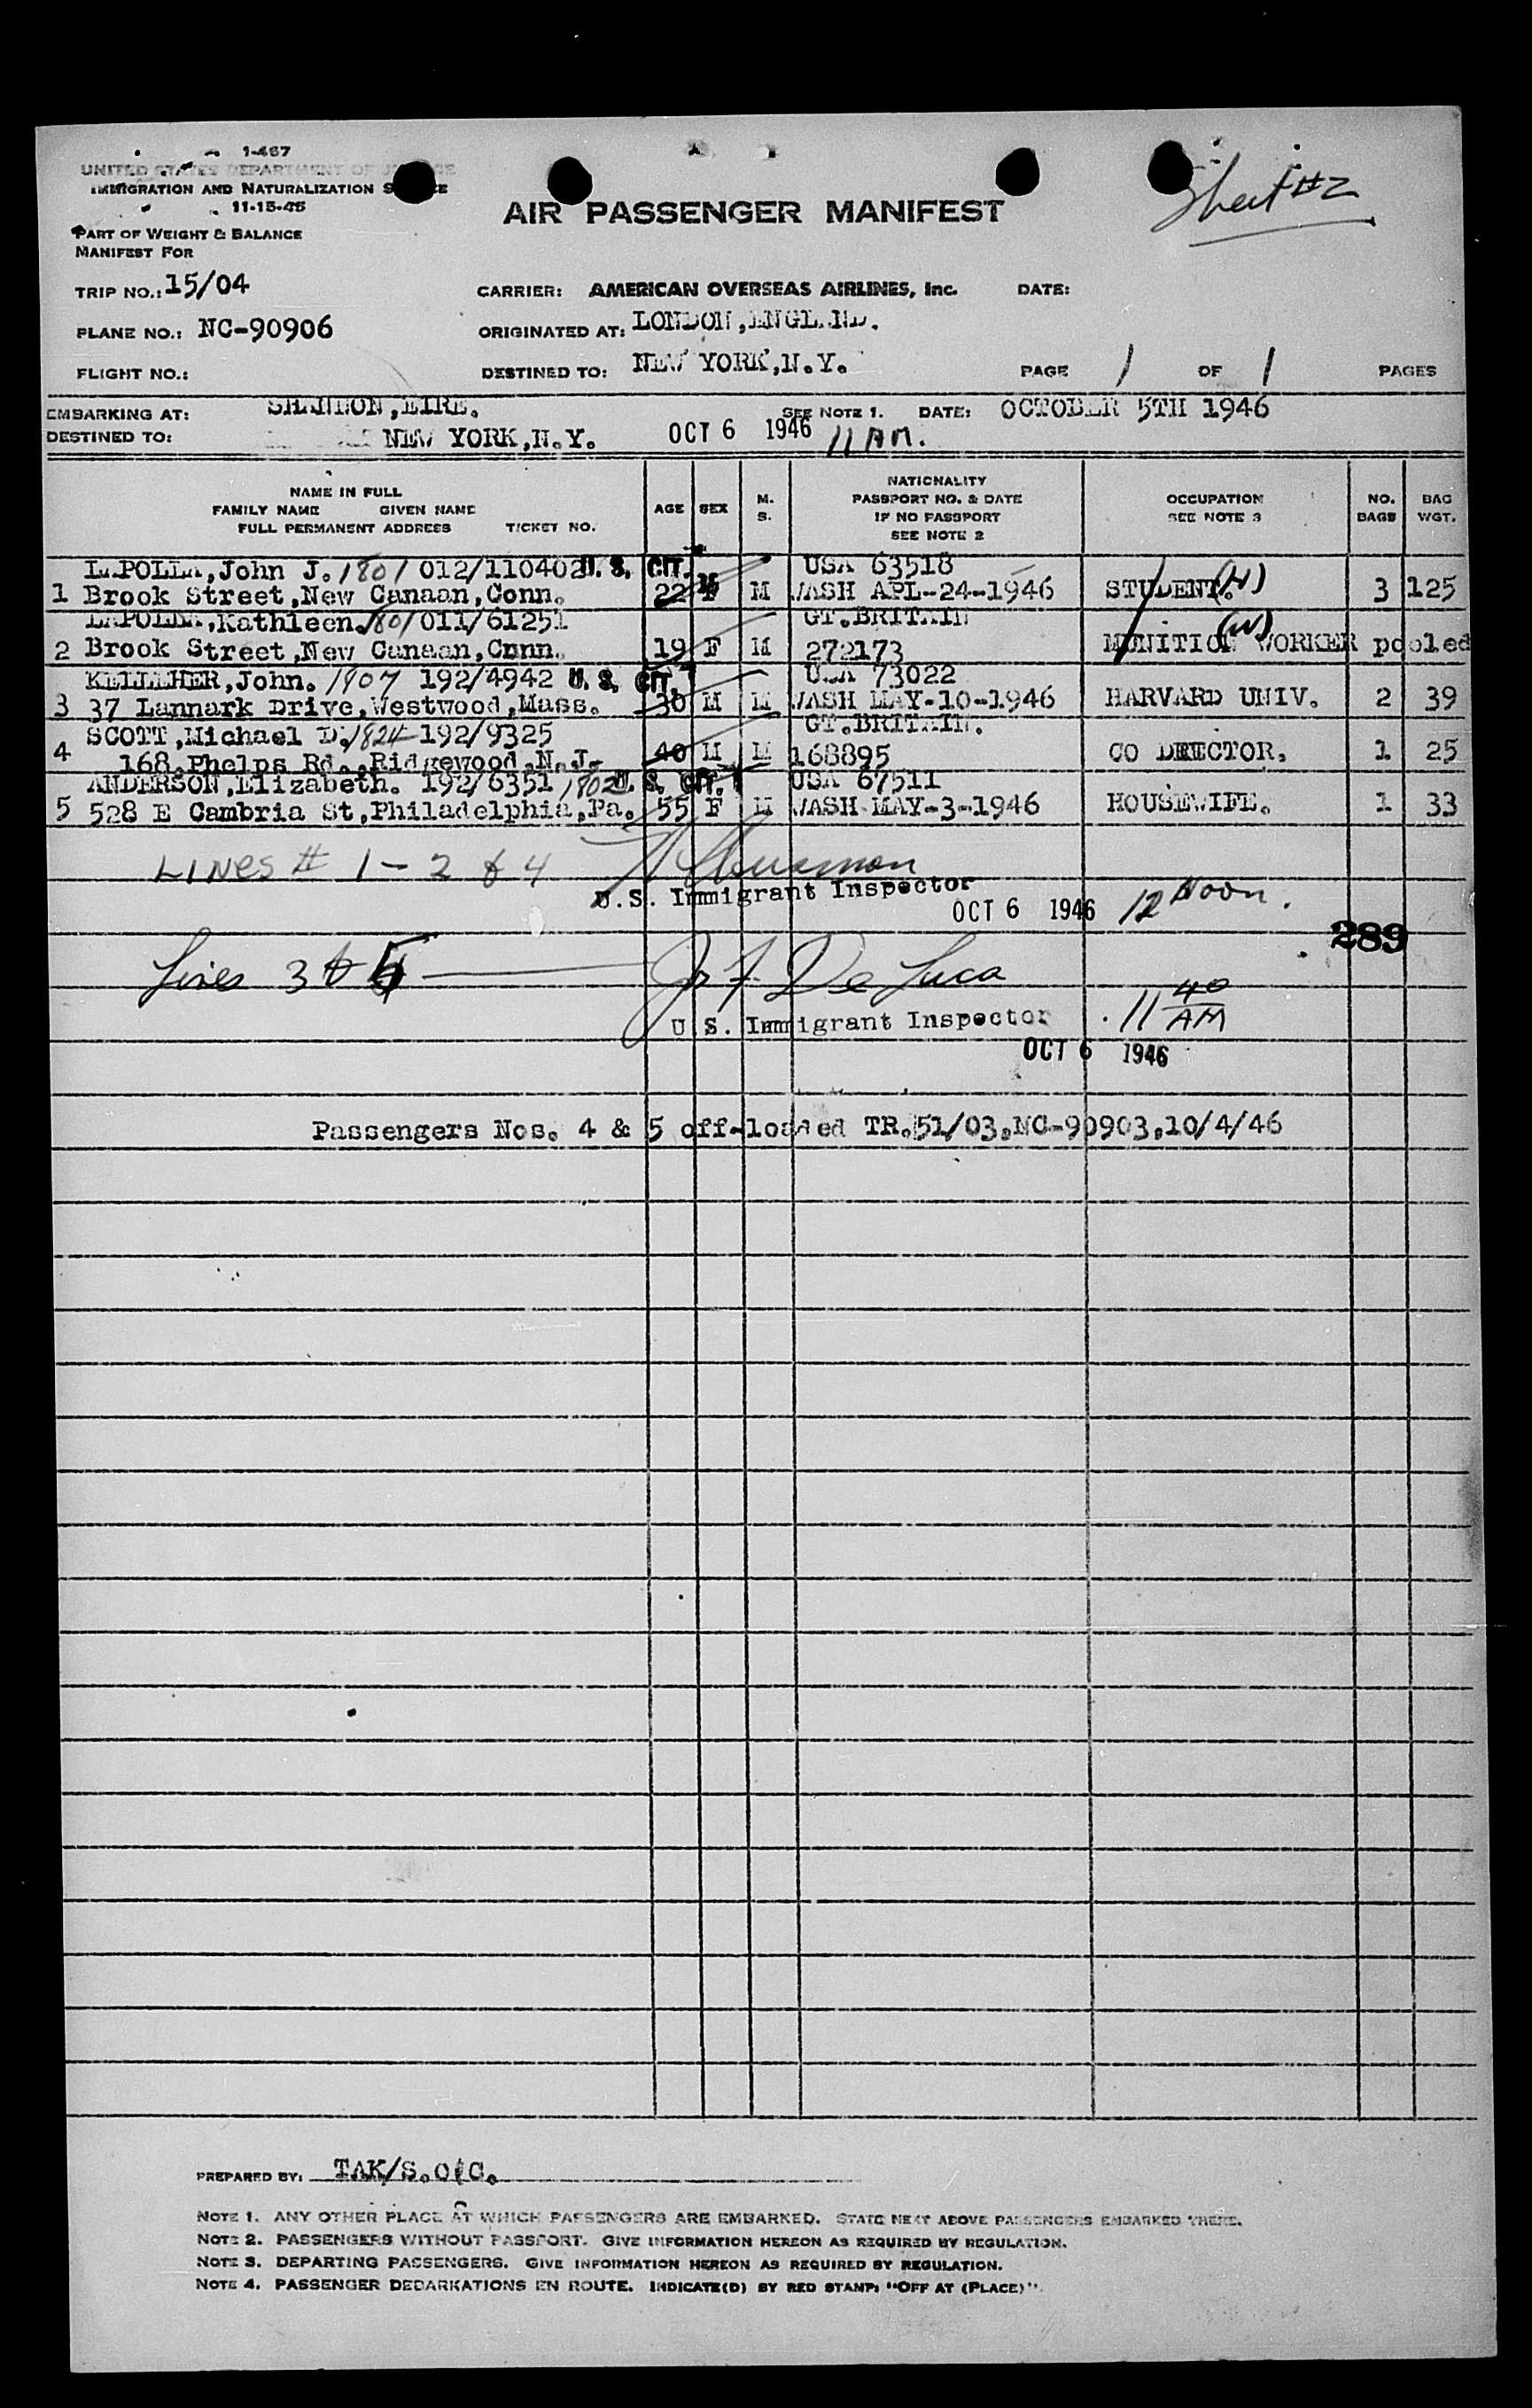 1-467
UNITED STATES DEPARTMENT OF JUSTICE
IMMIGRATION AND NATURALIZATION SERVICE
11-15-45
Sheet #2
AIR PASSENGER MANIFEST
PART OF WEIGHT & BALANCE
MANIFEST FOR
TRIP NO.: 15/04 CARRIER: AMERICAN OVERSEAS AIRLINES, Inc. DATE:
PLANE NO.: NC-90906 ORIGINATED AT: LONDON,ENGLAND.
FLIGHT NO.: DESTINED TO: NEW YORK,N.Y. PAGE 1 OF 1 PAGES
EMBARKING AT: SHANNON,EIRE. SEE NOTE 1. DATE: OCTOBER 5TH 1946
DESTINED TO: NEW YORK,N.Y. OCT 6 1946 11 AM.
NAME IN FULL
FAMILY NAME GIVEN NAME
FULL PERMANENT ADDRESS TICKET NO.
AGE SEX M. S.
NATIONALITY
PASSPORT NO. & DATE
IF NO PASSPORT
SEE NOTE 2
OCCUPATION
SEE NOTE 3
NO. BAGS BAG WGT.
LAPOLLA,John J. 1801 012/110402 U. S. CIT. USA 63518
1 Brook Street,New Canaan,Conn. 22 M WASH APL-24-1946 STUDENT. (H) 3 125
LAPOLLA,Kathleen. 1801 011/61251 GT.BRITAIN
2 Brook Street,New Canaan,Conn. 19 F M 272173 MUNITION WORKER (W) pooled
KELLEHER,John. 1907 192/4942 U. S. CIT. USA 73022
3 37 Lannark Drive,Westwood,Mass. 30 M M WASH MAY-10-1946 HARVARD UNIV. 2 39
SCOTT,Michael D. 1824 192/9325 GT.BRITAIN.
4 168,Phelps Rd.,Ridgewood,N.J. 40 M M 168895 CO DIRECTOR, 1 25
ANDERSON,Elizabeth. 192/6351 1802 U. S. CIT. USA 67511
5 528 E Cambria St,Philadelphia,Pa. 55 F M WASH MAY-3-1946 HOUSEWIFE. 1 33
LINES # 1 - 2 & 4
U.S. Immigrant Inspector
OCT 6 1946 12 Noon.
289
Lines 3 & 5 De Luca
U.S. Immigrant Inspector 11 40 AM
OCT 6 1946
Passengers Nos. 4 & 5 off-loaded TR.51/03,NC-90903,10/4/46
PREPARED BY: TAK/S.O'C.
NOTE 1. ANY OTHER PLACE AT WHICH PASSENGERS ARE EMBARKED. STATE NEXT ABOVE PASSENGERS EMBARKED THERE.
NOTE 2. PASSENGERS WITHOUT PASSPORT. GIVE INFORMATION HEREON AS REQUIRED BY REGULATION.
NOTE 3. DEPARTING PASSENGERS. GIVE INFORMATION HEREON AS REQUIRED BY REGULATION.
NOTE 4. PASSENGER DEBARKATIONS EN ROUTE. INDICATE(D) BY RED STAMP: "OFF AT (PLACE)".